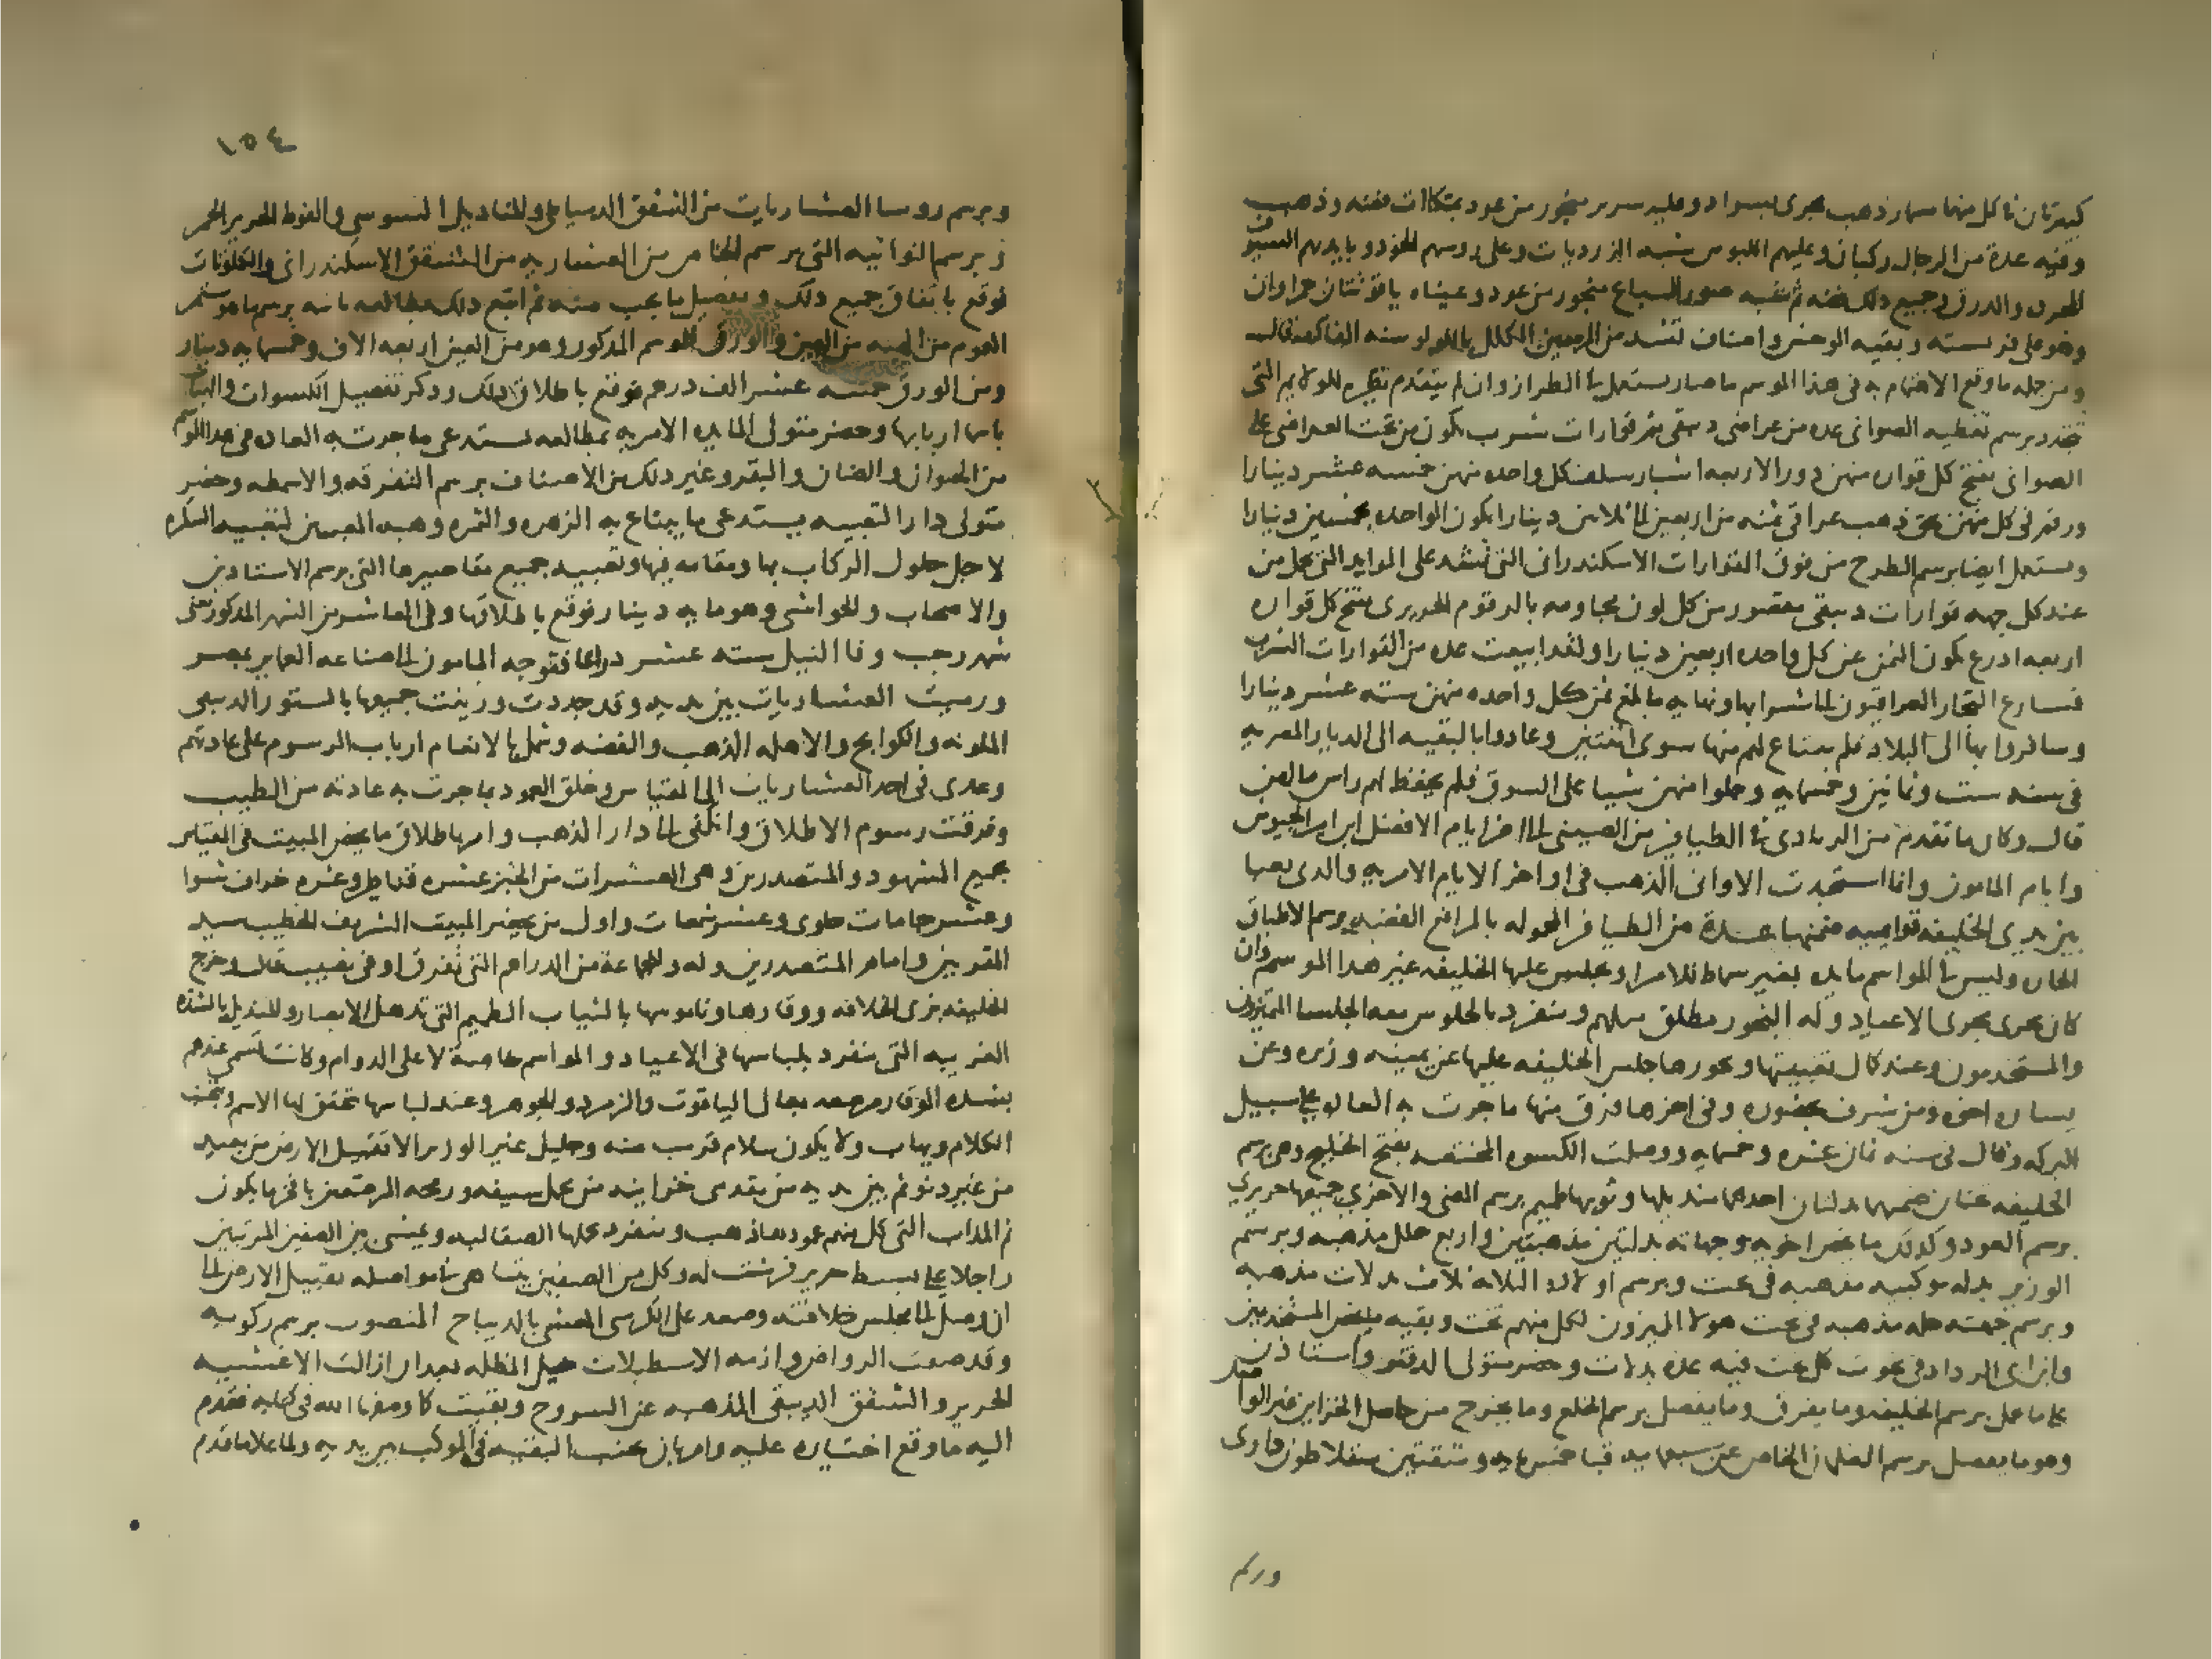 كبيرتان في كل منهما مسمار ذهب مجرى بسواد وعليه سرير منجور من عود بمتكاات فضه وذهب
وفيه عدة من الرجال ركبان وعليهم اللبوس شبه الزرديات وعلى روسهم الخود وبايديهم السيوف
المجرده والدرق وجميع ذلك فضه ثم شبه صور السباع منجور من عود وعيناه ياقوتتان حمراوان
وهو على فريسته وبقيه الوحش واصناف تشد من المرسين المكلل باللولو شبه الفاكهه قال
ومن جمله ما وقع الاهتمام به في هذا الموسم ما صار يستعمل في الطراز وان لم يتقدم نظيره للولايم التي
تتخذ برسم تغطيه الصواني عده من عراضي دبيقي ثم قوارات شرب تكون من تحت العراضي على
الصواني مفتح كل قواره منهن دور الاربعه اشبار سلف كل واحده منهن خمسه عشر دينارا
ورقم في كل منهن سجف ذهب عراقي ثمنه من اربعين الى ثلاثين دينارا تكون الواحده بخمسين دينارا
ويستعمل ايضا برسم الطرح من فوق القوارات الاسكندراني التي تشد على الموايد التي تحمل من
عند كل جهه قوارات دبيقي مقصور من كل لون محاومه بالرقوم الحريري مفتح كل قواره
اربعه ادرع يكون الثمن عن كل واحده اربعين دينارا ولقد ابيعت عده من القوارات الشرب
فسارع التجار العراقيون الى شرايها ونهايه ما بلغ ثمن كل واحده منهن سته عشر دينارا
وسافروا بها الى البلاد فلم يبتاع لهم منها سوى اثنتين وعادوا بالبقيه الى الديار المصريه
في سنه ست وثمانين وخمسمايه وحملوا منهن شيا على السوق فلم يحفظ لهم راس مالهن
قال وكان ما تقدم من الزبادي في الطيافير من الصيني الى اخر ايام الافضل ابن امير الجيوش
وايام المامون وانما استجدت الاواني الذهب في اواخر الايام الامريه والذي يعبا
بين يدي الخليفه قواميه ضمنها عدة من الطيافر المحموله بالمرافع الفضه برسم الاطباق
الحاره وليس في المواسم مايده بغير سماط للامرا ويجلس عليها الخليفه غير هذا الموسم وان
كان يجري مجرى الاعياد وله البخور مطلق مثلهم وينفرد بالجلوس معه الجلسا المميزون
والمستخدمون وعند كمال تعبيتها وبخورها جلس الخليفه عليها عن يمينه وزيره وعن
يساره اخوه ومن شرف بحضوره وفي اخرها فرق منها ما جرت به العاده على سبيل
البركه وقال في سنه ثمان عشره وخمسمايه ووصلت الكسوه المختصه بفتح الخليج وهي برسم
الخليفه تختان ضمنهما بدلتان احدهما منديلها وثوبها طميم برسم المضي والاخرى جميعها حريري
برسم العود وكذلك ما يختص باخوته وجهاته بدلتين مذهبتين واربع حلل مذهبه وبرسم
الوزير بدله موكبيه مذهبه في تخت وبرسم اولاده الثلاثه ثلاث بدلات مذهبه
وبرسم جهته حله مذهبه في تخت هولا المميزون لكل منهم تخت وبقيه ما يخص المستخدمين
وابن ابي الرداد في تخوت كل تخت فيه عده بدلات وحضر متولي الدفتر واستاذن
على ما يحمل برسم الخليفه وما يفرق وما يفصل برسم الخلع وما يخرج من حاصل الخزاين غير الواصل
وهو ما يفصل برسم الغلمان الخاص عن سبعمايه قبا خمسمايه وشقتين سقلاطون داري
وبرسم
١٥٤
وبرسم روسا العشاريات من الشقق الدمياطي والمناديل السوسي والفوط الحرير الحمر
وبرسم النواتيه التي برسم الخاص من العشاريه من الشقق الاسكندراني والكلوتات
فوقع بانفاق جميع ذلك وتفصيل ما يجب منه ثم اتبع ذلك بمطالعه بانه برسم ما هو مستمر
العموم من الهبه من العين والورق للموسم المذكور وهو من العين اربعه الاف وخمسمايه دينار
ومن الورق خمسه عشر الف درهم فوقع باطلاق ذلك وذكر تفصيل الكسوات والهبات
باسما اربابها وحضر متولي المايده الامريه بمطالعه يستدعي ما جرت به العاده في هذا الموسم
من الحيوان والضان والبقر وغير ذلك من الاصناف برسم التفرقه والاسمطه وحضر
متولي دار التعبيه يستدعي ما يبتاع به الزهره والثمره وهبه المعبيين لتعبيه السكره
لاجل حلول الركاب بها ومقامه فيها وتعبيه جميع مقاصيرها التي برسم الاستادين
والاصحاب والحواشي وهو مايه دينار فوقع باطلاقها وفي العاشر من الشهر المذكور يعني
شهر رجب وفا النيل سته عشر دراعا فتوجه المامون الى صناعه العماير بمصر
ورميت العشاريات بين يديه وقد جددت وزينت جميعها بالستور الدبيقي
الملونه والكوابج والاهله الذهب والفضه وشمل الانعام ارباب الرسوم على عادتهم
وعدى في احد العشاريات الى المقياس وخلق العمود بما جرت به عادته من الطيب
وفرقت رسوم الاطلاق وانكفى الى دار الذهب وامر باطلاق ما يخص المبيت في المقياس
بجميع الشهود والمتصدرين وهي العشرات من الخبز عشره قناطير وعشره خراف شوا
وعشر جامات حلوى وعشر شمعات واول من يحضر المبيت الشريف الخطيب سيد
المقريين وامام المتصدرين وله وللجماعة من الدراهم التي تفرق اوفى نصيب قال وخرج
الخليفه بزي الخلافه ووقارها وناموسها بالثياب الطميم التي تذهل الابصار والمنديل بالشده
العربيه التي ينفرد بلباسها في الاعياد والمواسم خاصة لا على الدوام وكانت تسمى عندهم
بشده الوقار مرصعه بغالي الياقوت والزمرد والجوهر وعند لباسها تخفق لها الاعلام ويتجنب
الكلام ويهاب ولا يكون سلام قريب منه وخليل غير الوزير الا تقبيل الارض من بعيد
من غير دنو ثم بين يديه من مقدمي خزاينه من يحمل سيفه ورمحه المرصعين بافخر ما يكون
ثم المذاب التي كل منهم عمودها ذهب وينفرد بحملها الصقالبه ويمشي بين الصفين المرتبين
راجلا على بسط حرير فرشت له وكل من الصفين يتناهى في مواصله تقبيل الارض الى
ان وصل الى مجلس خلافته وصعد على الكرسي المغشى بالديباج المنصوب برسم ركوبه
وقد صفت الرواض وازمه الاسطبلات خيل المظله بعد ان ازالت الاغشيه
الحرير والشقق الدبيقي المذهبه عن السروج وبقيت كما وصفها الله في كتابه فتقدم
اليه ما وقع اختياره عليه وامر بان يجنب البقيه في الموكب بين يديه ولما علا ما قدم